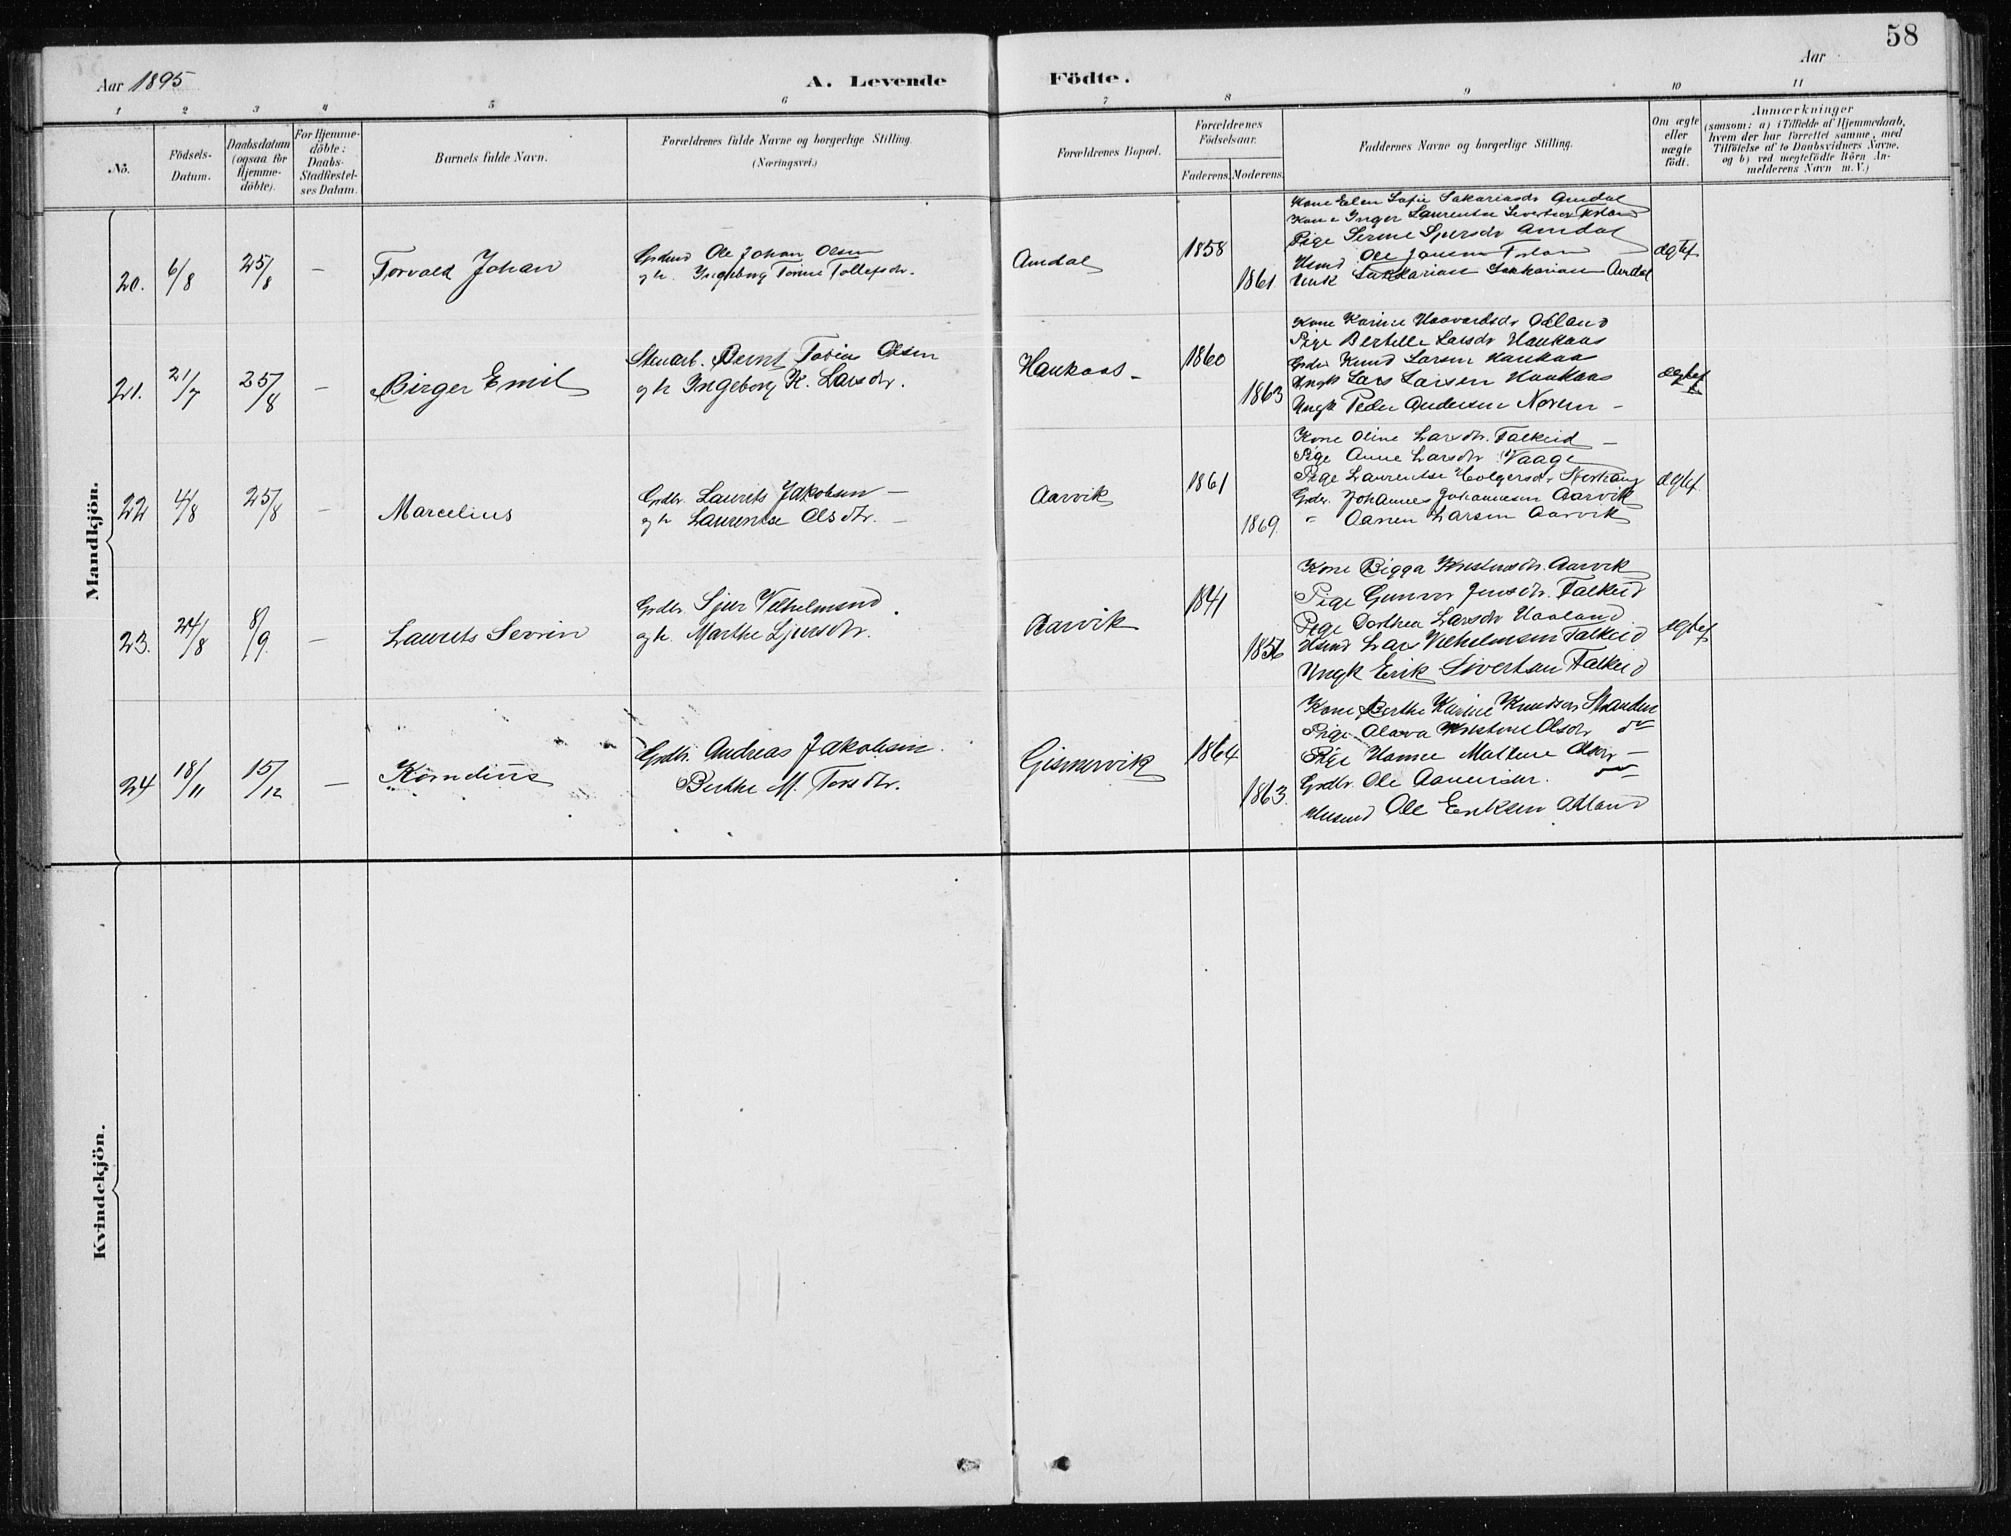 58
Aar 1895
A. Levende Födte.
Aar
1 2 3 4 5 6 7 8 9 10 11
No.
Födsels-Datum.
Daabsdatum (ogsaa for Hjemme-döbte).
For Hjemme-döbte: Daabs-Stadfæstel-ses Datum.
Barnets fulde Navn.
Forældrenes fulde Navne og borgerlige Stilling.
(Næringsvei.)
Forældrenes Bopæl.
Forældrenes Födselsaar.
Faderens. Moderens.
Faddernes Navne og borgerlige Stilling.
Om ægte eller uægte födt.
Anmærkninger
(saasom: a) i Tilfælde af Hjemmedaab,
hvem der har forrettet samme, med
Tilföielse af to Daabsvidners Navne.
og b) ved uægtefödte Börn An-
melderens Navn m. V.)
Mandkjön.
20. 6/8 25/8 – Torvald Johan
Ole Johan Olsen
og h. Ingeborg Tomine Tollefsdr.
Amdal
1858
1861
Kone Elen Sofie Sakariasdr Amdal
Kone Inger Laurentse
Pige Serine Sjursdr Amdal
Husmd Ole
Ungk Sakarias Amdal
ægtef
21. 21/7 25/8 – Birger Emil
Stenarb. Bernt Tobias Olsen
og h Ingeborg K. Larsdr.
Haukaas –
1860
1863
Kone Karine Haavardsdr
Pige Bertille Larsdr Haukaas
Grdbr Knud Larsen Haukaas
Ungk Lars Larsen Haukaas
Ungk Peder Andersen –
ægtef
22 4/8 25/8 – Marcelius
Grdbr. Laurits Jakobsen –
og h Laurentse Olsdtr. –
Aarvik
1861
1869.
Kone Oline Larsdtr. Falkeid –
Pige Anne Larsdtr Vaage
Pige Laurentse Holgersdr
Grdbr. Johannes Johannesen Aarvik
" Aanen Larsen Aarvik
ægtef.
23. 24/8 8/9. – Laurits Sevrin
Grdbr. Sjur Vilhelmsend.
og h. Marthe Sjursdtr.
Aarvik
1841
1856
Kone Bigga Kristensdr. Aarvik
Pige Gunvor Jensdtr. Falkeid
Pige Dorthea Larsdr Haaland
Husmd Lars Vilhelmsen Falkeid
Ungk Erik Sivertsen Falkeid
ægtef
24 18/11 15/12 – Kornelius
Grdbr. Andreas Jakobsen.
Berthe M. Torsdtr.
Gismervik
1864
1863.
Kone Berthe Karine Knudsdr
Pige Olava Kristine Olsdr
Pige Hanne Mathene Olsdr –
Grdbr. Ole
Husmd Ole Eriksen
Kvindekjön.